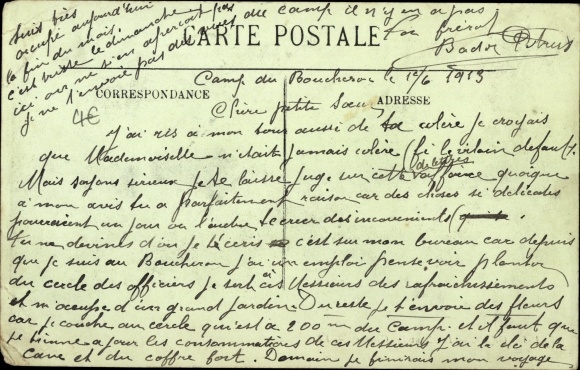 suis très
occupé aujourd'hui
la fin du mois.
c'est triste le dimanche
ici on ne s'en aperçoit pas
je ne t'envoie pas de vues du camp il n'y en a pas
Ton frérot
Bador
CARTE POSTALE
Camp du Boucheron le 1/6 1913
CORRESPONDANCE
ADRESSE
4€
Chère petite Sœur
J'ai ris à mon tour aussi de ta colère je croyais
que Mademoiselle n'était jamais colère (oh le vilain défaut).
Mais soyons sérieux je te laisse juge sur cette quoique
à mon avis tu a parfaitement raison car des choses si délicates
pourraient un jour ou l'autre te créer des inconvénients
tu ne devines d'où je t'écris c'est sur mon bureau car depuis
que je suis au Boucheron j'ai un emploi pense voir planton
du cercle des officiers je sert à ces Messieurs des rafraîchissements
et m'occupe d'un grand jardin. Du reste je t'envoie des fleurs
car je couche au cercle qu'est à 200 m du Camp. et il faut que
je tienne à jour les consommations de ces Messieurs j'ai la clé de la
cave et du coffre fort. Demain je finirais mon voyage